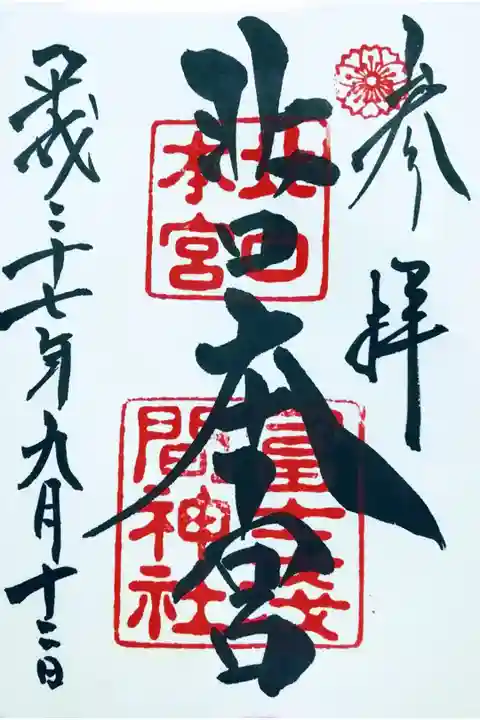 参拝
北口本宮
北口
本宮
冨士浅
間神社
平成二十七年九月十二日